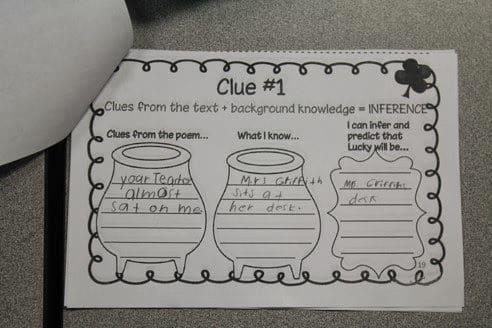 Clue #1
Clues from the text + background knowledge = INFERENCE
Clues from the poem...
What I know...
I can infer and
predict that
Lucky will be...
your Teacher
almost
sat on me
Mrs Griffith
sits at
her desk.
Mrs Griffith
desk
19